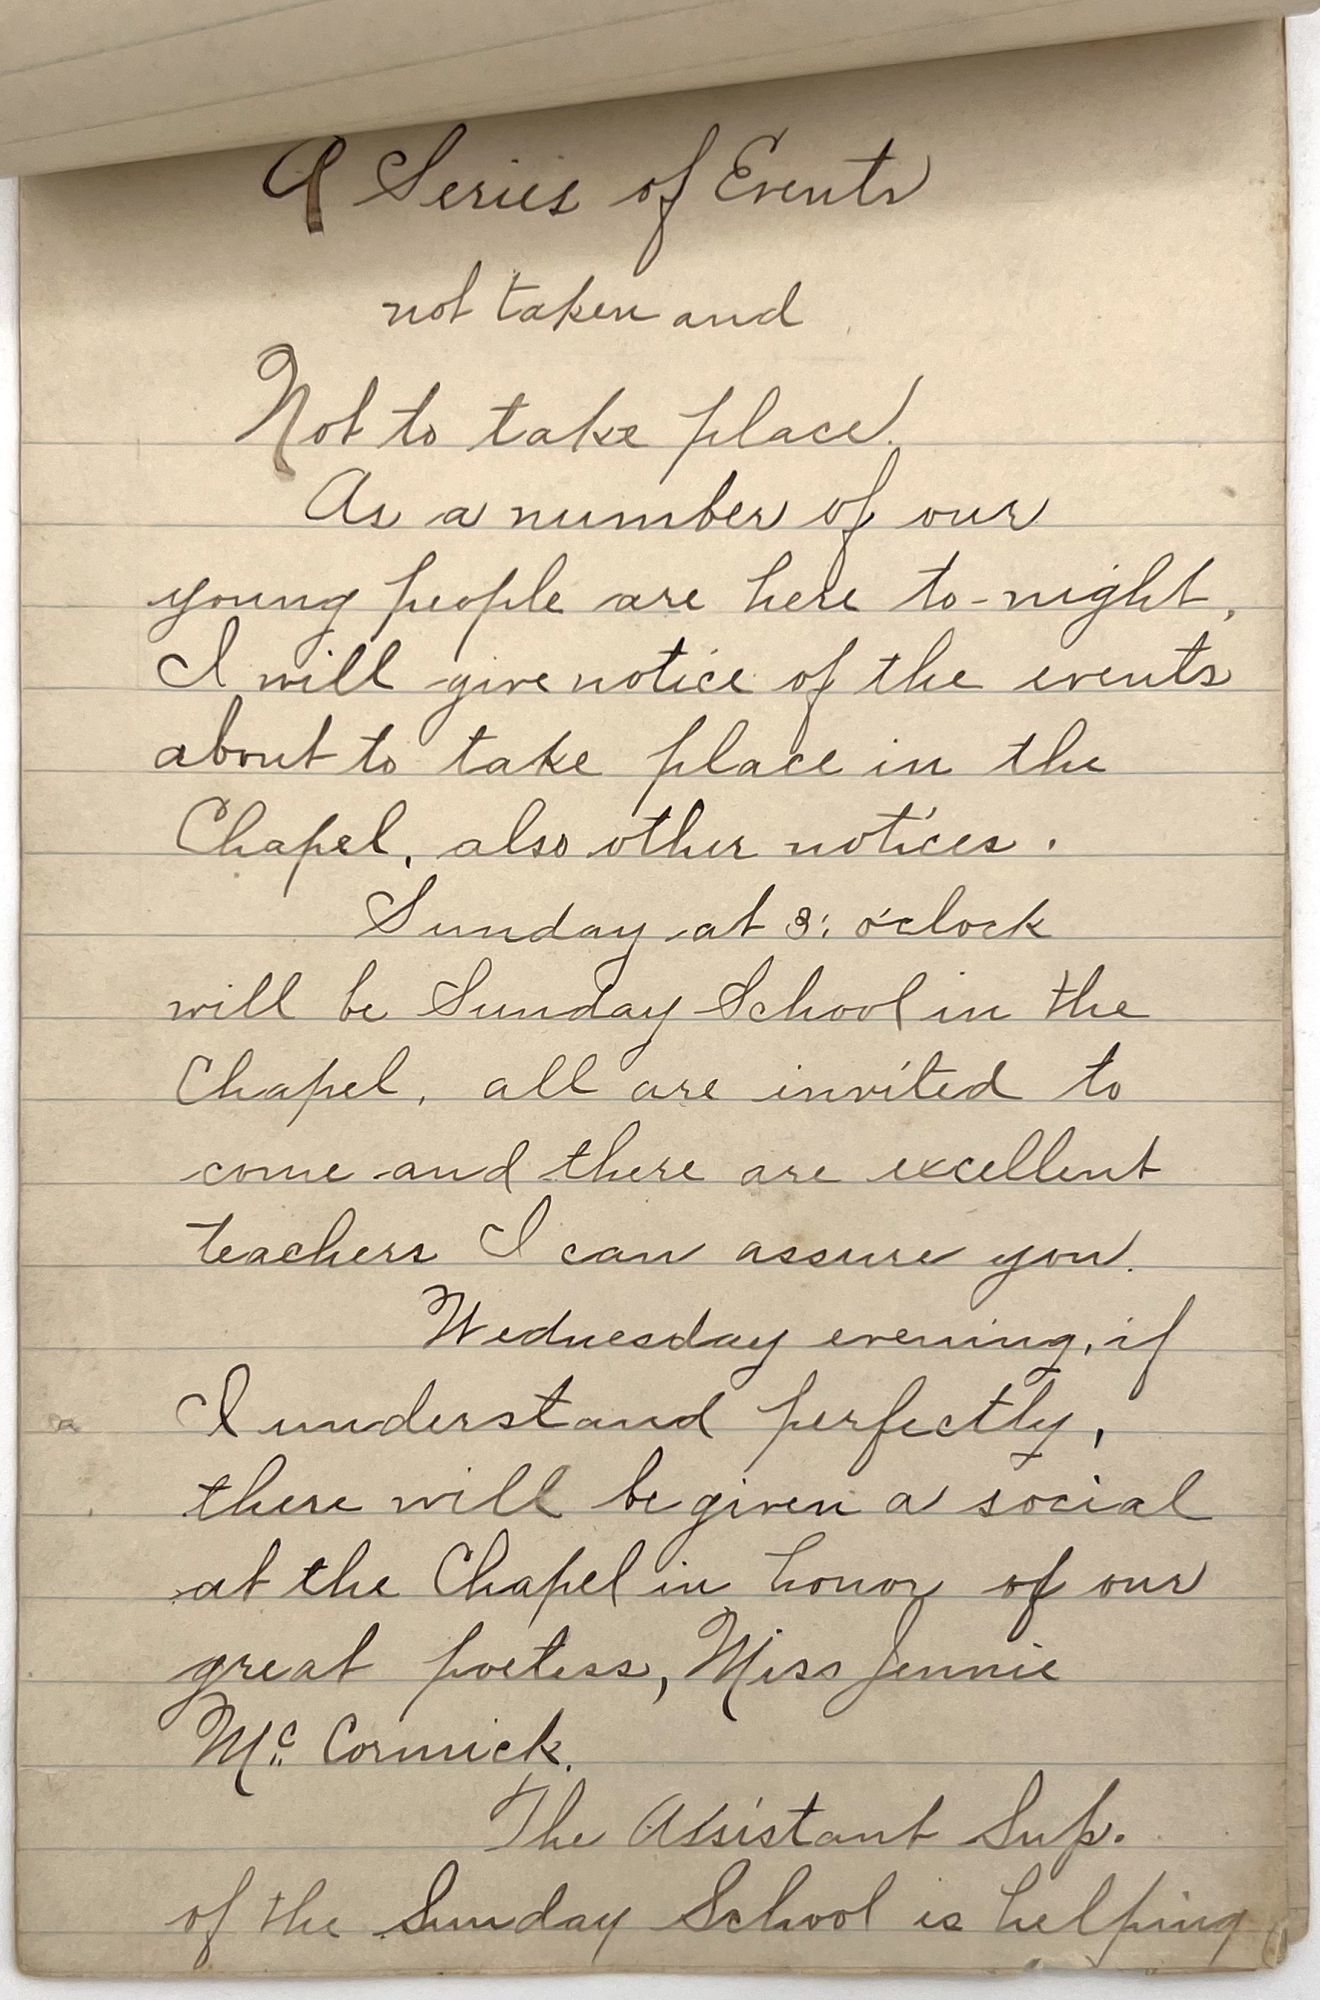 A Series of Events
not taken and
Not to take place.
As a number of our
young people are here to-night,
I will give notice of the events
about to take place in the
Chapel, also other notices.
Sunday at 3: o'clock
will be Sunday School in the
Chapel, all are invited to
come and there are excellent
teachers I can assure you.
Wednesday evening, if
I understand perfectly,
there will be given a social
at the Chapel in honor of our
great poetess, Miss Jennie
Mc. Cormick.
The Assistant Sup.
of the Sunday School is helping